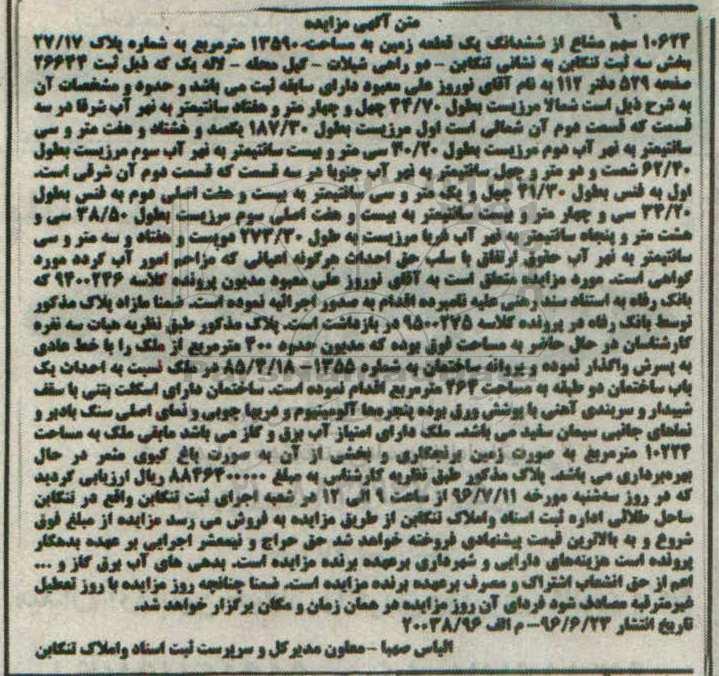 متن آگهی مزایده
۱۰۶۲۴ سهم مشاع از ششدانگ یک قطعه زمین به مساحت ۱۳۵۹۰ مترمربع به شماره پلاک ۲۷/۱۷
بخش سه ثبت تنکابن به نشانی تنکابن - دو راهی شیلات - گیل محله - لاله یک که ذیل ثبت ۲۶۶۴۴
صفحه ۵۲۹ دفتر ۱۱۲ به نام آقای نوروز علی معبود دارای سابقه ثبت می باشد و حدود و مشخصات آن
به شرح ذیل است شمالا مرزیست بطول ۴۴/۷۰ چهل و چهار متر و هفتاد سانتیمتر به نهر آب شرقا در سه
قسمت که قسمت دوم آن شمالی است اول مرزیست بطول ۱۸۷/۳۰ یکصد و هشتاد و هفت متر و سی
سانتیمتر به نهر آب دوم مرزیست بطول ۳۰/۲۰ سی متر و بیست سانتیمتر به نهر آب سوم مرزیست بطول
۶۲/۴۰ شصت و دو متر و چهل سانتیمتر به نهر آب جنوبا در سه قسمت که قسمت دوم آن شرقی است.
اول به فنس بطول ۴۱/۳۰ چهل و یک متر و سی سانتیمتر به بیست و هفت اصلی دوم به فنس بطول
۳۴/۲۰ سی و چهار متر و بیست سانتیمتر به بیست و هفت اصلی سوم مرزیست بطول ۳۸/۵۰ سی و
هشت متر و پنجاه سانتیمتر به نهر آب غربا مرزیست به طول ۲۷۳/۳۰ دویست و هفتاد و سه متر و سی
سانتیمتر به نهر آب حقوق ارتفاق با سلب حق احداث هرگونه اعیانی که مزاحم امور آب گردد مورد
گواهی است. مورد مزایده متعلق است به آقای نوروز علی معبود مدیون پرونده کلاسه ۹۴۰۰۲۴۶ که
بانک رفاه به استناد سند رهنی علیه نامبرده اقدام به صدور اجرائیه نموده است. ضمنا مازاد پلاک مذکور
توسط بانک رفاه در پرونده کلاسه ۹۵۰۰۲۷۵ در بازداشت است. پلاک مذکور طبق نظریه هیات سه نفره
کارشناسان در حال حاضر به مساحت فوق بوده که مدیون حدود ۴۰۰ مترمربع از ملک را با خط عادی
به پسرش واگذار نموده و پروانه ساختمان به شماره ۱۳۵۵- ۸۵/۴/۱۸ در ملک نسبت به احداث یک
باب ساختمان دو طبقه به مساحت ۲۶۴ مترمربع اقدام نموده است. ساختمان دارای اسکلت بتنی با سقف
شیبدار و سربندی آهنی با پوشش ورق بوده پنجره‌ها آلومینیوم و دربها چوبی و نمای اصلی سنگ بادبر و
نماهای جانبی سیمان سفید می باشد. ملک دارای امتیاز آب برق و گاز می باشد مابقی ملک به مساحت
۱۰۲۲۴ مترمربع به صورت زمین برنجکاری و بخشی از آن به صورت باغ کیوی مثمر در حال
بهره‌برداری می باشد. پلاک مذکور طبق نظریه کارشناس به مبلغ ۸۸۴۶۴۰۰۰۰۰ ریال ارزیابی گردید
که در روز سه‌شنبه مورخه ۹۶/۷/۱۱ از ساعت ۹ الی ۱۲ در شعبه اجرای ثبت تنکابن واقع در تنکابن
ساحل طلائی اداره ثبت اسناد واملاک تنکابن از طریق مزایده به فروش می رسد مزایده از مبلغ فوق
شروع و به بالاترین قیمت پیشنهادی فروخته خواهد شد حق حراج و نیمعشر اجرایی بر عهده بدهکار
پرونده است هزینه‌های دارایی و شهرداری برعهده برنده مزایده است. بدهی های آب برق گاز و ...
اعم از حق انشعاب اشتراک و مصرف برعهده برنده مزایده است. ضمنا چنانچه روز مزایده با روز تعطیل
غیرمترقبه مصادف شود فردای آن روز مزایده در همان زمان و مکان برگزار خواهد شد.
تاریخ انتشار ۹۶/۶/۲۳- م الف ۲۰۰۳۸/۹۶
الیاس صهبا - معاون مدیرکل و سرپرست ثبت اسناد واملاک تنکابن